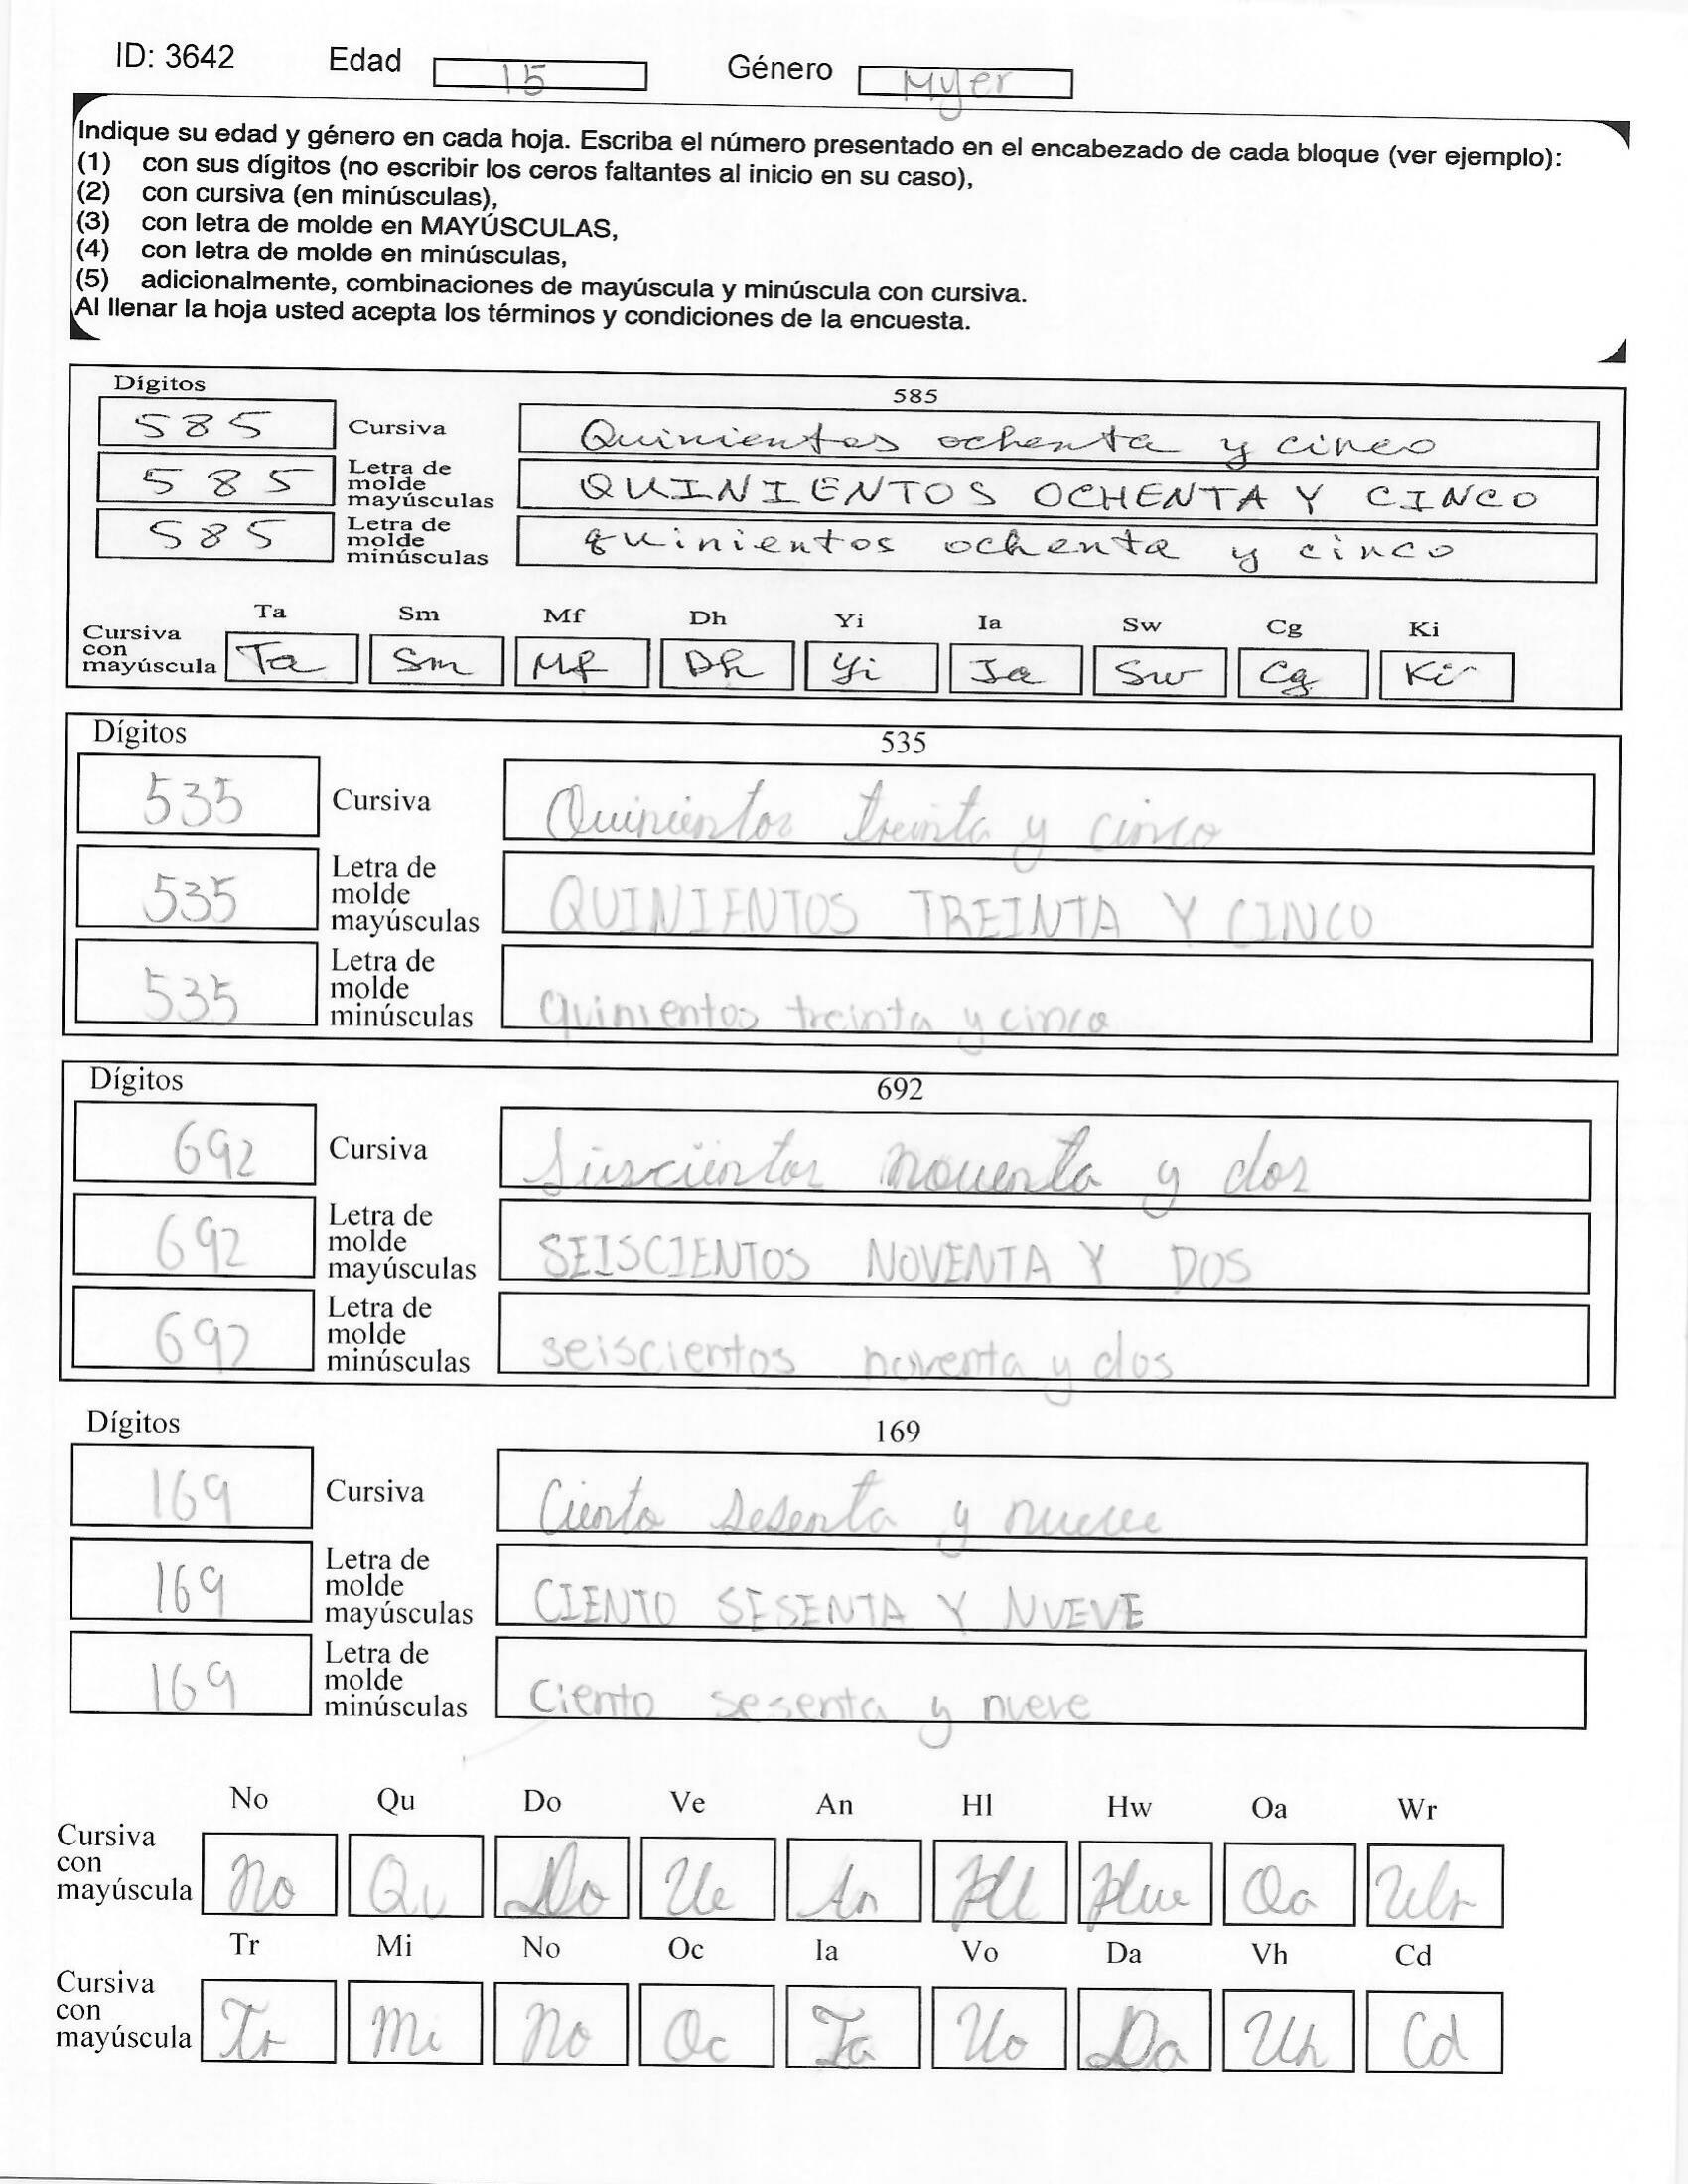 ID: 3642 Edad 15 Género Mujer
Indique su edad y género en cada hoja. Escriba el número presentado en el encabezado de cada bloque (ver ejemplo):
(1) con sus dígitos (no escribir los ceros faltantes al inicio en su caso),
(2) con cursiva (en minúsculas),
(3) con letra de molde en MAYÚSCULAS,
(4) con letra de molde en minúsculas,
(5) adicionalmente, combinaciones de mayúscula y minúscula con cursiva.
Al llenar la hoja usted acepta los términos y condiciones de la encuesta.
Dígitos 585
585 Cursiva Quinientos ochenta y cinco
585 Letra de molde mayúsculas QUINIENTOS OCHENTA Y CINCO
585 Letra de molde minúsculas quinientos ochenta y cinco
Ta Sm Mf Dh Yi Ia Sw Cg Ki
Cursiva con mayúscula Ta Sm Mf Dh Yi Ia Sw Cg Ki
Dígitos 535
535 Cursiva Quinientos treinta y cinco
535 Letra de molde mayúsculas QUINIENTOS TREINTA Y CINCO
535 Letra de molde minúsculas quinientos treinta y cinco
Dígitos 692
692 Cursiva Seiscientos noventa y dos
692 Letra de molde mayúsculas SEISCIENTOS NOVENTA Y DOS
692 Letra de molde minúsculas seiscientos noventa y dos
Dígitos 169
169 Cursiva Ciento sesenta y nueve
169 Letra de molde mayúsculas CIENTO SESENTA Y NUEVE
169 Letra de molde minúsculas Ciento sesenta y nueve
No Qu Do Ve An Hl Hw Oa Wr
Cursiva con mayúscula No Qu Do Ve An Hl Hw Oa Wr
Tr Mi No Oc Ia Vo Da Vh Cd
Cursiva con mayúscula Tr Mi No Oc Ia Vo Da Vh Cd